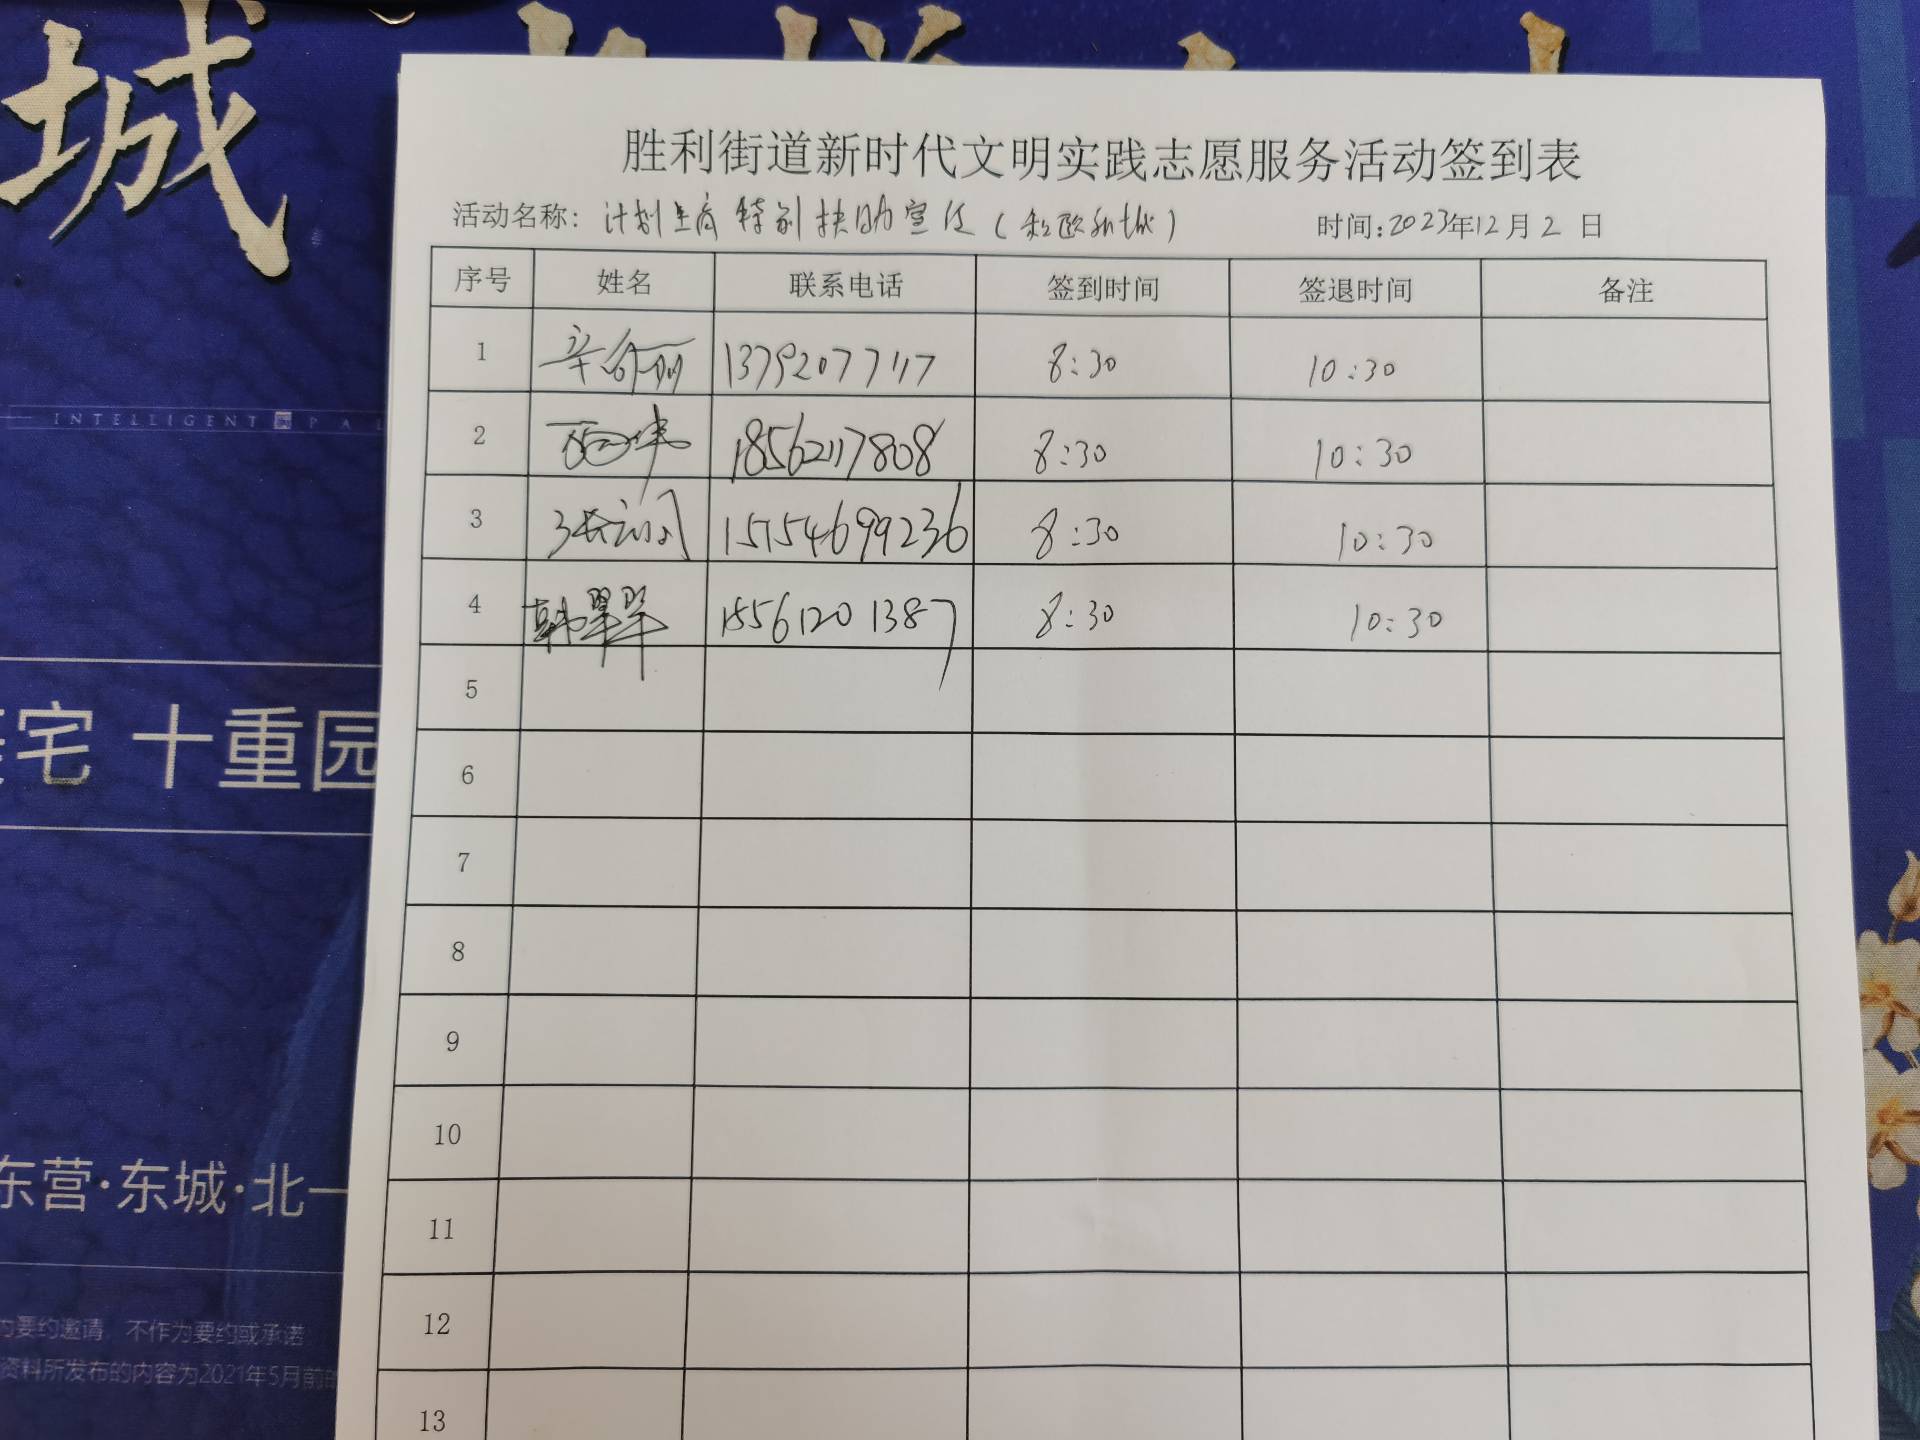 城
INTELLIGENT PAL
宅 十重园
东营·东城·北一
要约邀请，不作为要约或承诺
资料所发布的内容为2021年5月前
胜利街道新时代文明实践志愿服务活动签到表
活动名称：计划生育特别扶助宣传（和城） 时间:2023年12月2日
序号 姓名 联系电话 签到时间 签退时间 备注
1 辛 13792077117 8:30 10:30
2 18562117808 8:30 10:30
3 张 15154699236 8:30 10:30
4 韩翠翠 15561201387 8:30 10:30
5
6
7
8
9
10
11
12
13